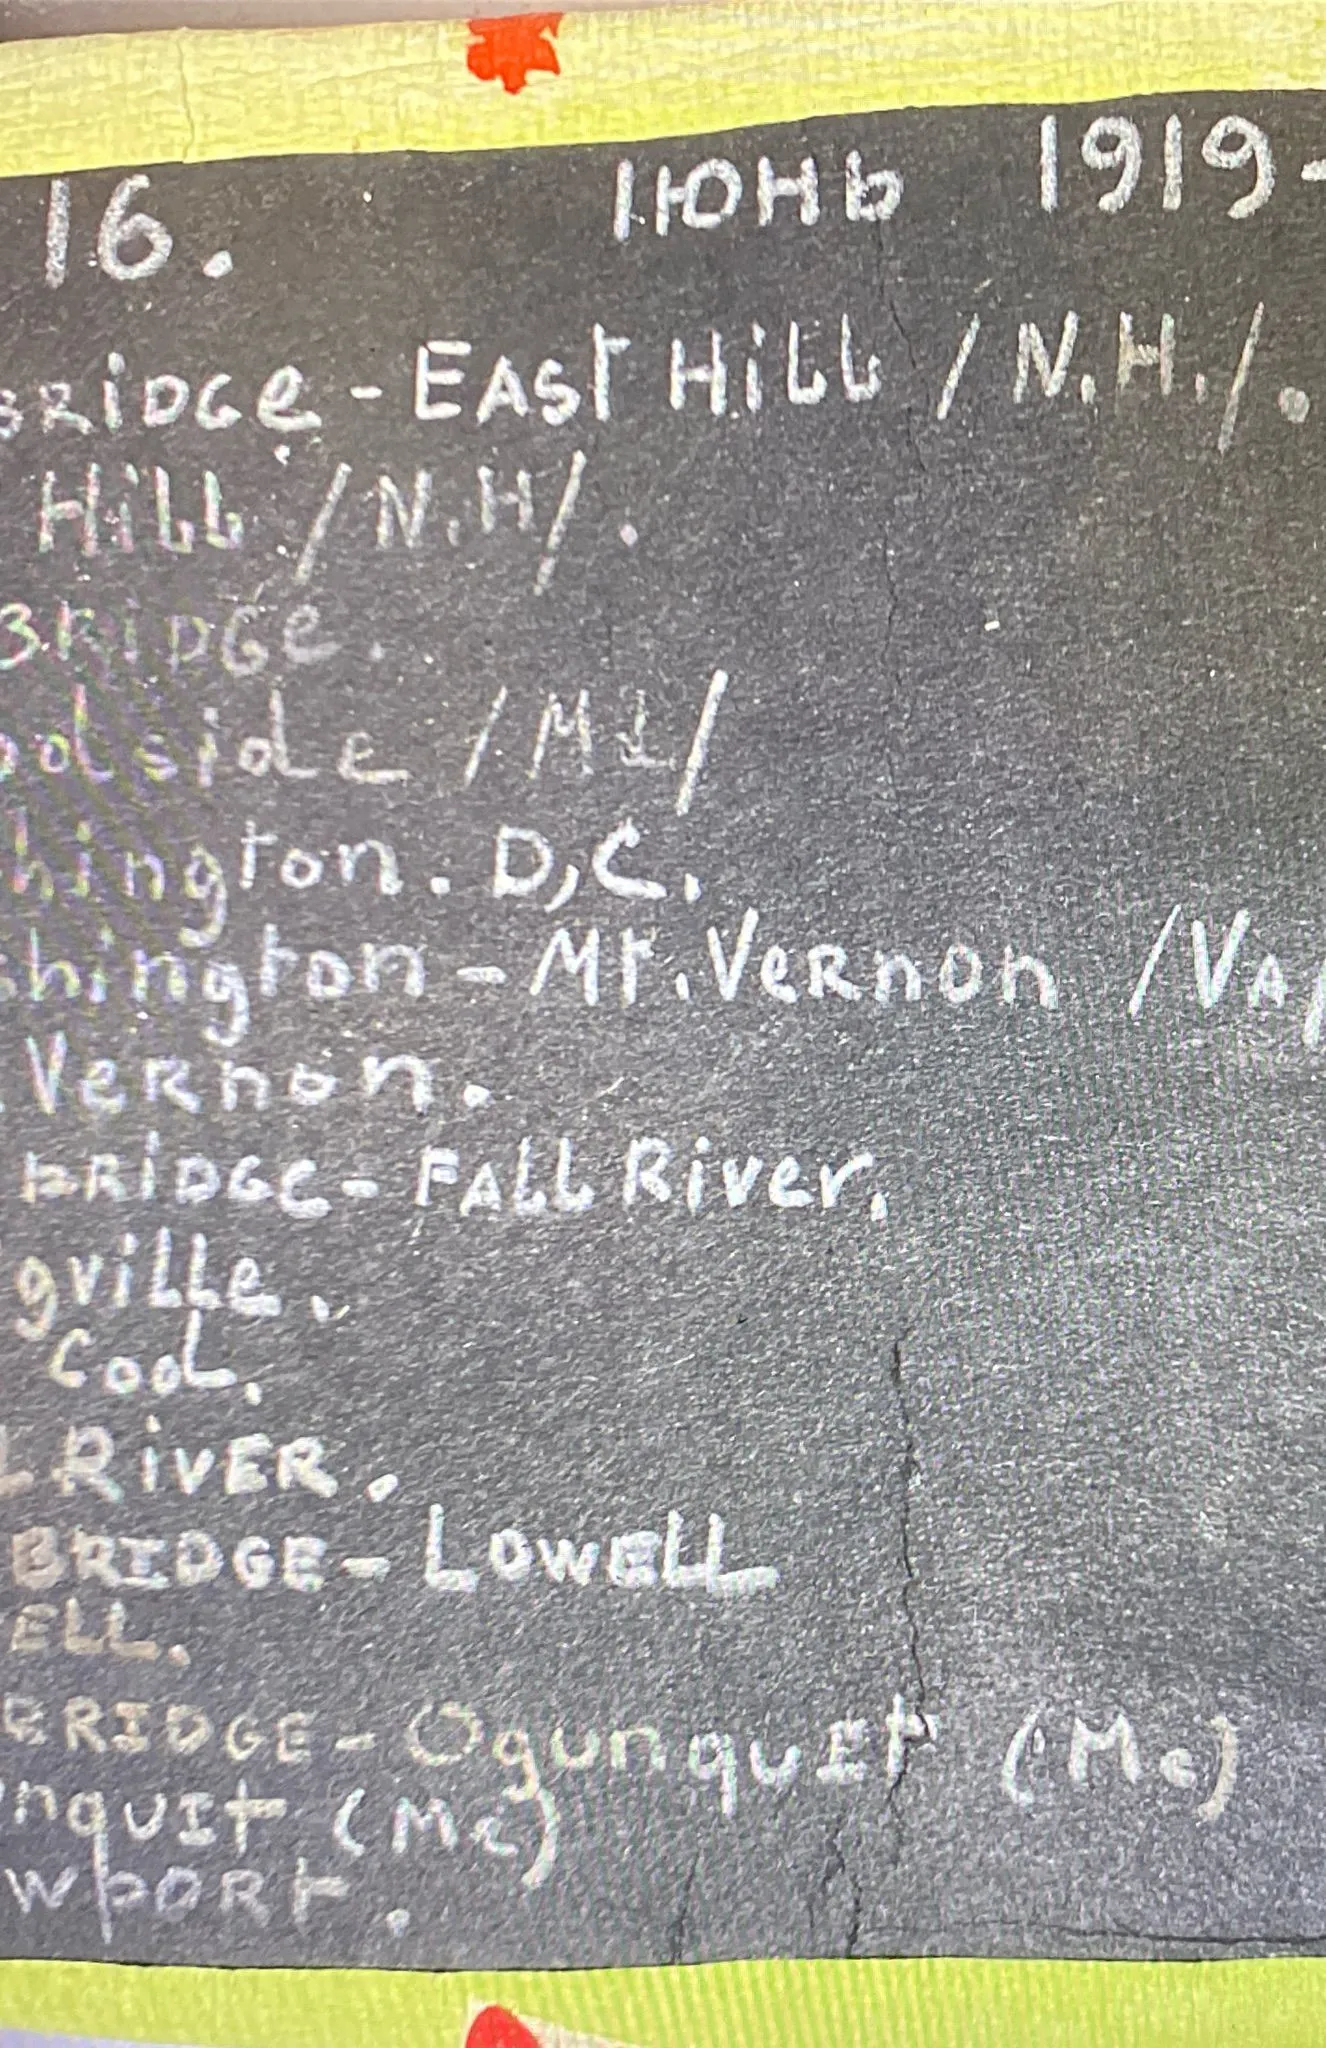 16. ИЮНЬ 1919-
BRiDGe - EAST HiLL / N.H./.
HiLL / N.H/.
BRIDGe.
odside /Md/
hington. D,C.
shington - Mt. VeRnon /VA/
. VeRnon.
BRiDGe - FALL RiveR.
gville.
Cod.
L RiVER.
BRIDGE - LOWELL
ELL.
BRIDGE - OgunquIt (Me)
nquIt (Me)
wpORt.